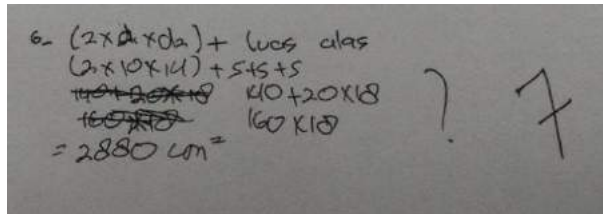 6- (2×d1×d2) + luas alas
(2×10×14) + 5+5+5
140+20×18 140+20×18
160×18 160×18
= 2880 cm²
? 7